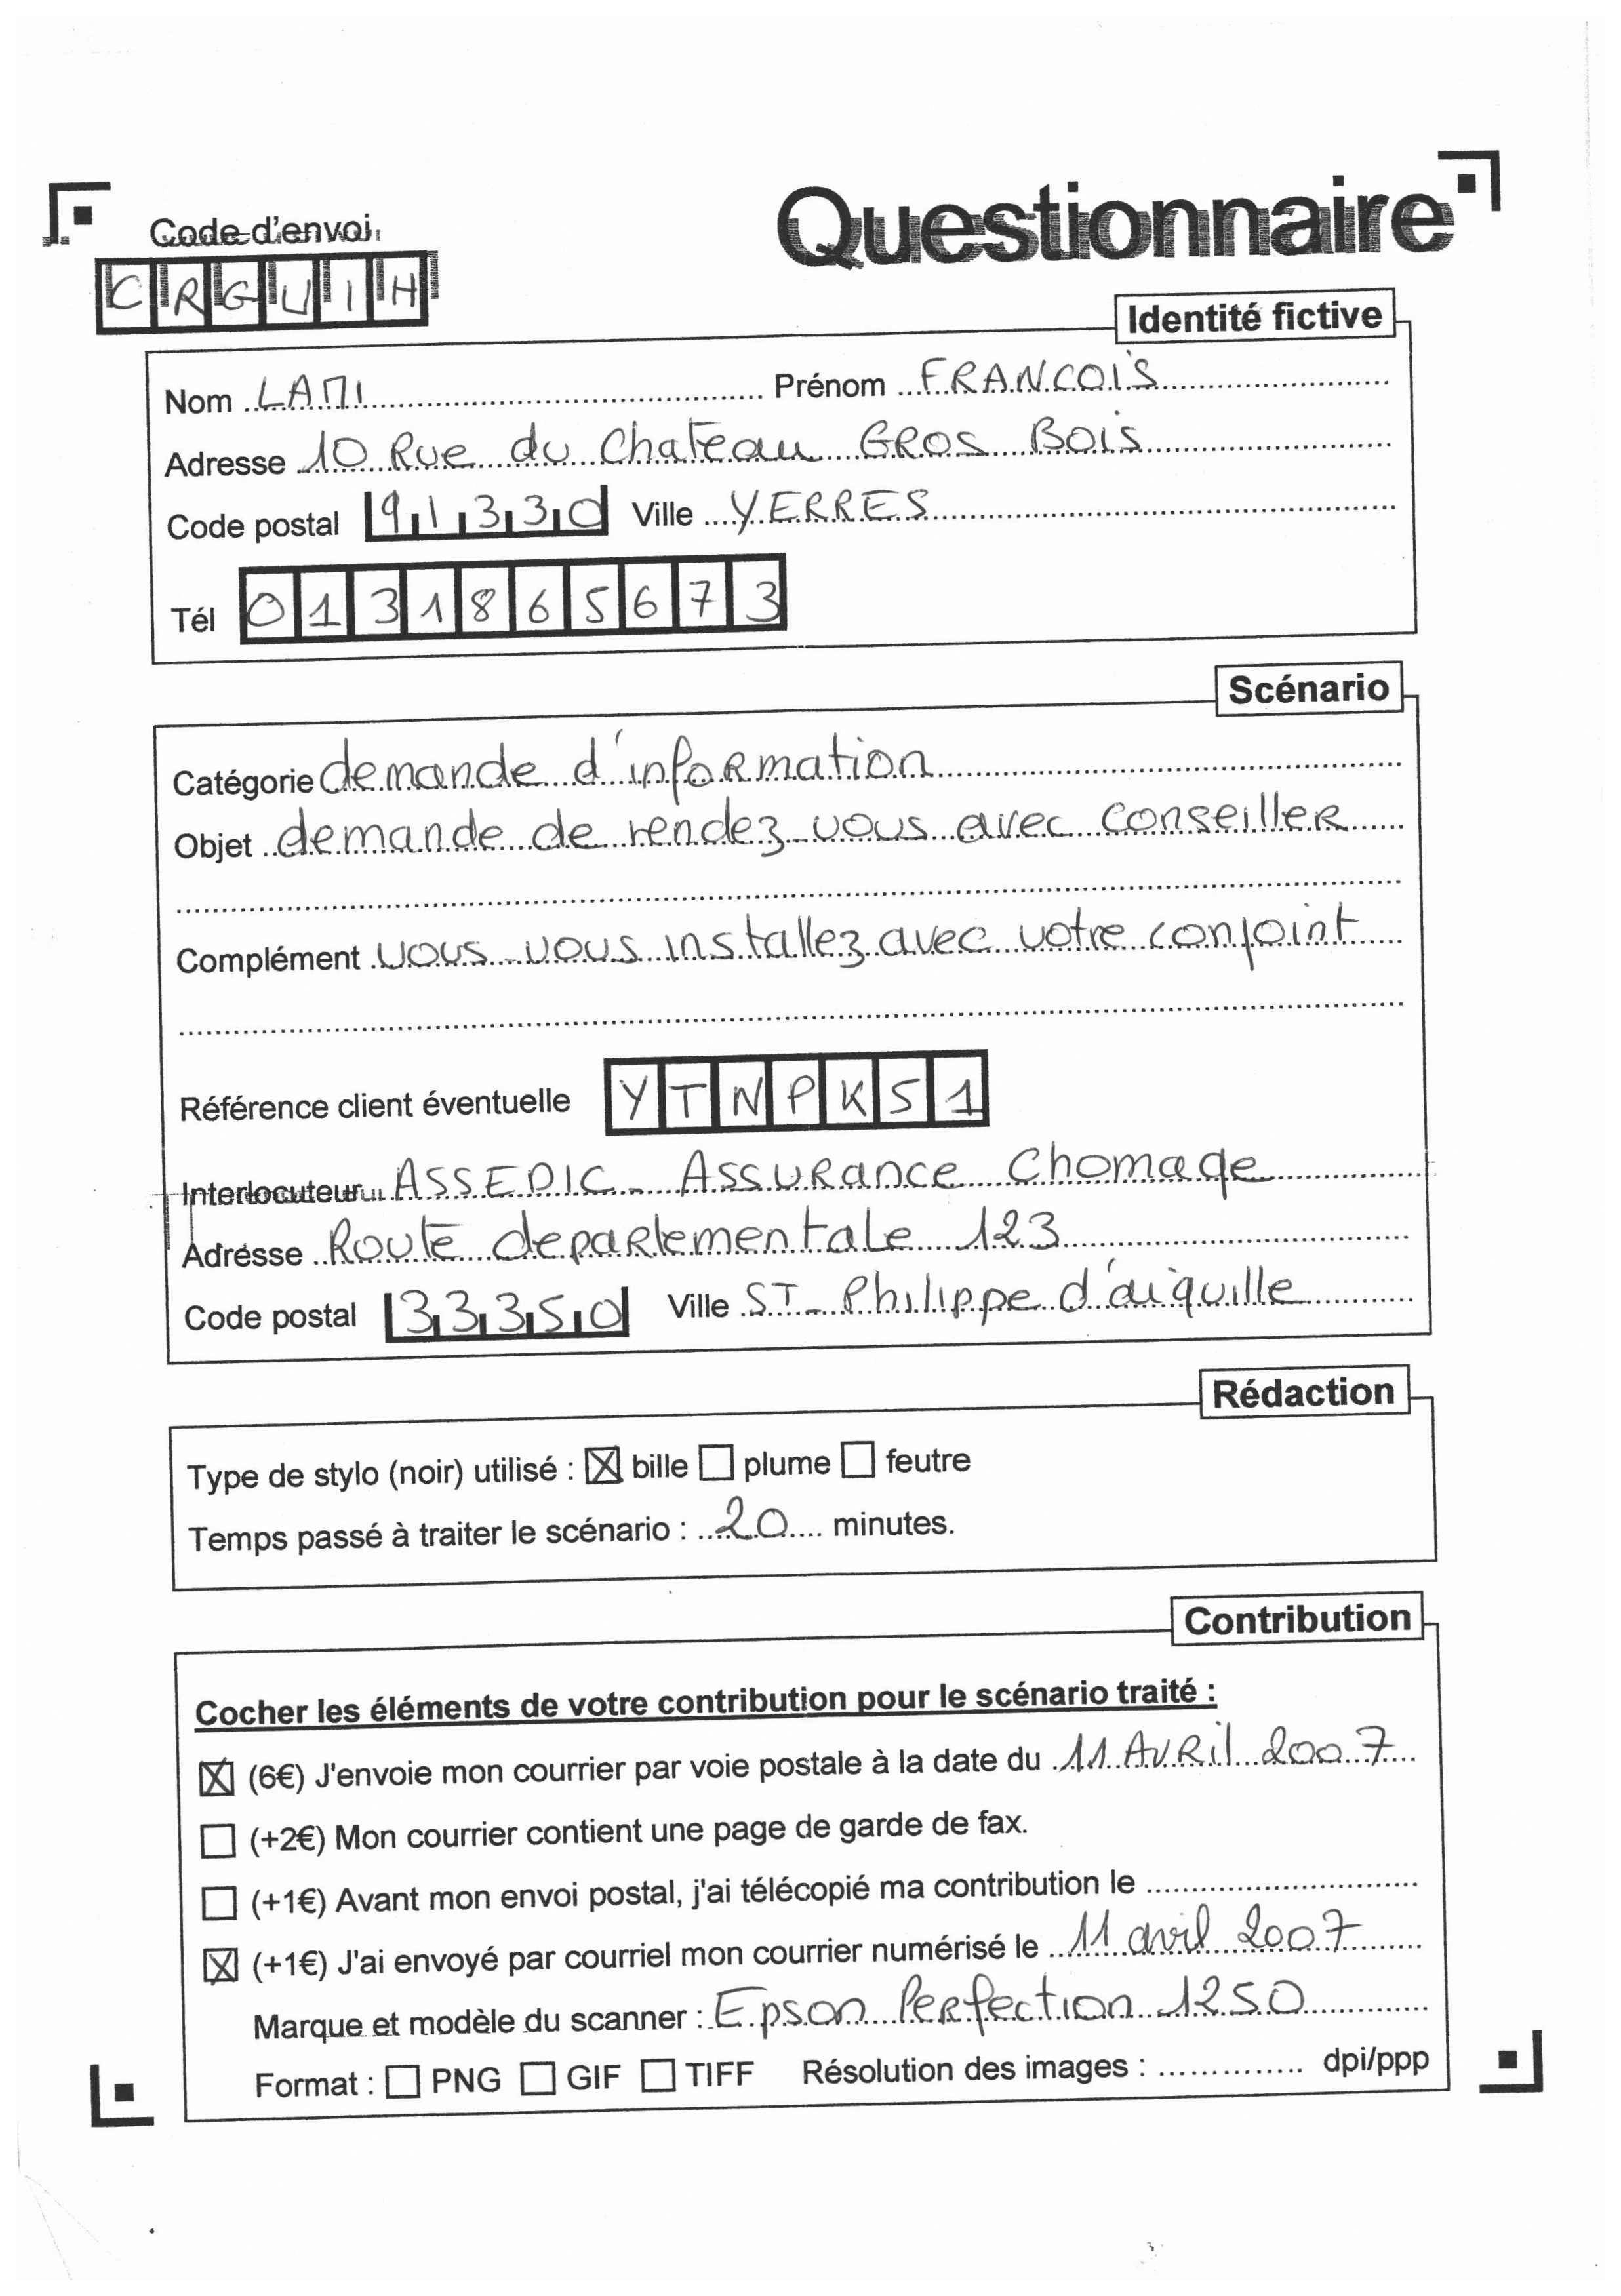 Questionnaire
Code d'envoi
CRGUIH
Identité fictive
Nom LAMI Prénom FRANCOIS
Adresse 10 Rue du Chateau GROS BOIS
Code postal 91330 Ville YERRES
Tél 0131865673
Scénario
Catégorie demande d'information
Objet demande de rendez-vous avec conseiller
Complément vous vous installez avec votre conjoint
Référence client éventuelle YTNPK51
Interlocuteur ASSEDIC - Assurance Chomage
Adresse Route departementale 123
Code postal 33350 Ville ST-Philippe d'aiguille
Rédaction
Type de stylo (noir) utilisé : ☒ bille ☐ plume ☐ feutre
Temps passé à traiter le scénario : 20 minutes.
Contribution
Cocher les éléments de votre contribution pour le scénario traité :
☒ (6€) J'envoie mon courrier par voie postale à la date du 11 Avril 2007
☐ (+2€) Mon courrier contient une page de garde de fax.
☐ (+1€) Avant mon envoi postal, j'ai télécopié ma contribution le
☒ (+1€) J'ai envoyé par courriel mon courrier numérisé le 11 avril 2007
Marque et modèle du scanner : Epson Perfection 1250
Format : ☐ PNG ☐ GIF ☐ TIFF Résolution des images : .............. dpi/ppp